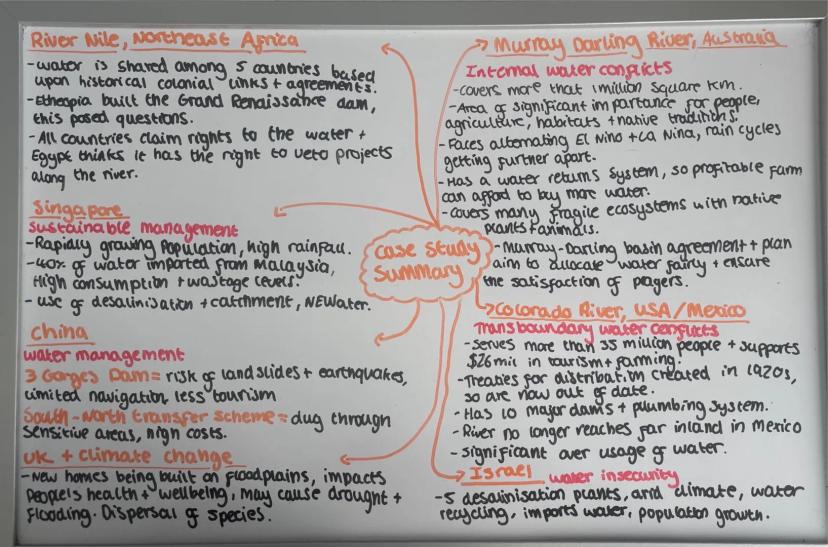 River Nile, Northeast Africa
-water is shared among 5 countries based
upon historical colonial links + agreements.
-Ethiopia built the Grand Renaissance dam,
this posed questions.
-All countries claim rights to the water +
Egypt thinks it has the right to veto projects
along the river.
Singapore
sustainable management
-Rapidly growing population, high rainfall.
-40% of water imported from Malaysia,
High consumption + wastage levels.
- use of desalinisation + catchment, NEWater.
China
water management
3 Gorges Dam = risk of landslides + earthquakes,
limited navigation, less tourism
South-North transfer scheme = dug through
sensitive areas, high costs.
UK + climate change
-New homes being built on floodplains, impacts
people's health + wellbeing, may cause drought +
flooding. Dispersal of species.
Case Study
Summary
Murray Darling River, Australia
Internal water conflicts
-covers more that 1million square km.
-Area of significant importance for people,
agriculture, habitats + native traditions.
-Faces alternating El Nino + La Nina, rain cycles
getting further apart.
-Has a water returns system, so profitable farm
can afford to buy more water.
-covers many fragile ecosystems with native
plants + animals.
-Murray-Darling basin agreement + plan
aim to allocate water fairly + ensure
the satisfaction of players.
Colorado River, USA/Mexico
Transboundary water conflicts
-Serves more than 35 million people + supports
$26mil in tourism + farming.
-Treaties for distribution created in 1920s,
so are now out of date.
-Has 10 major dams + plumbing system.
-River no longer reaches far inland in Mexico
-significant over usage of water.
Israel water insecurity
-5 desalinisation plants, arid climate, water
recycling, imports water, population growth.